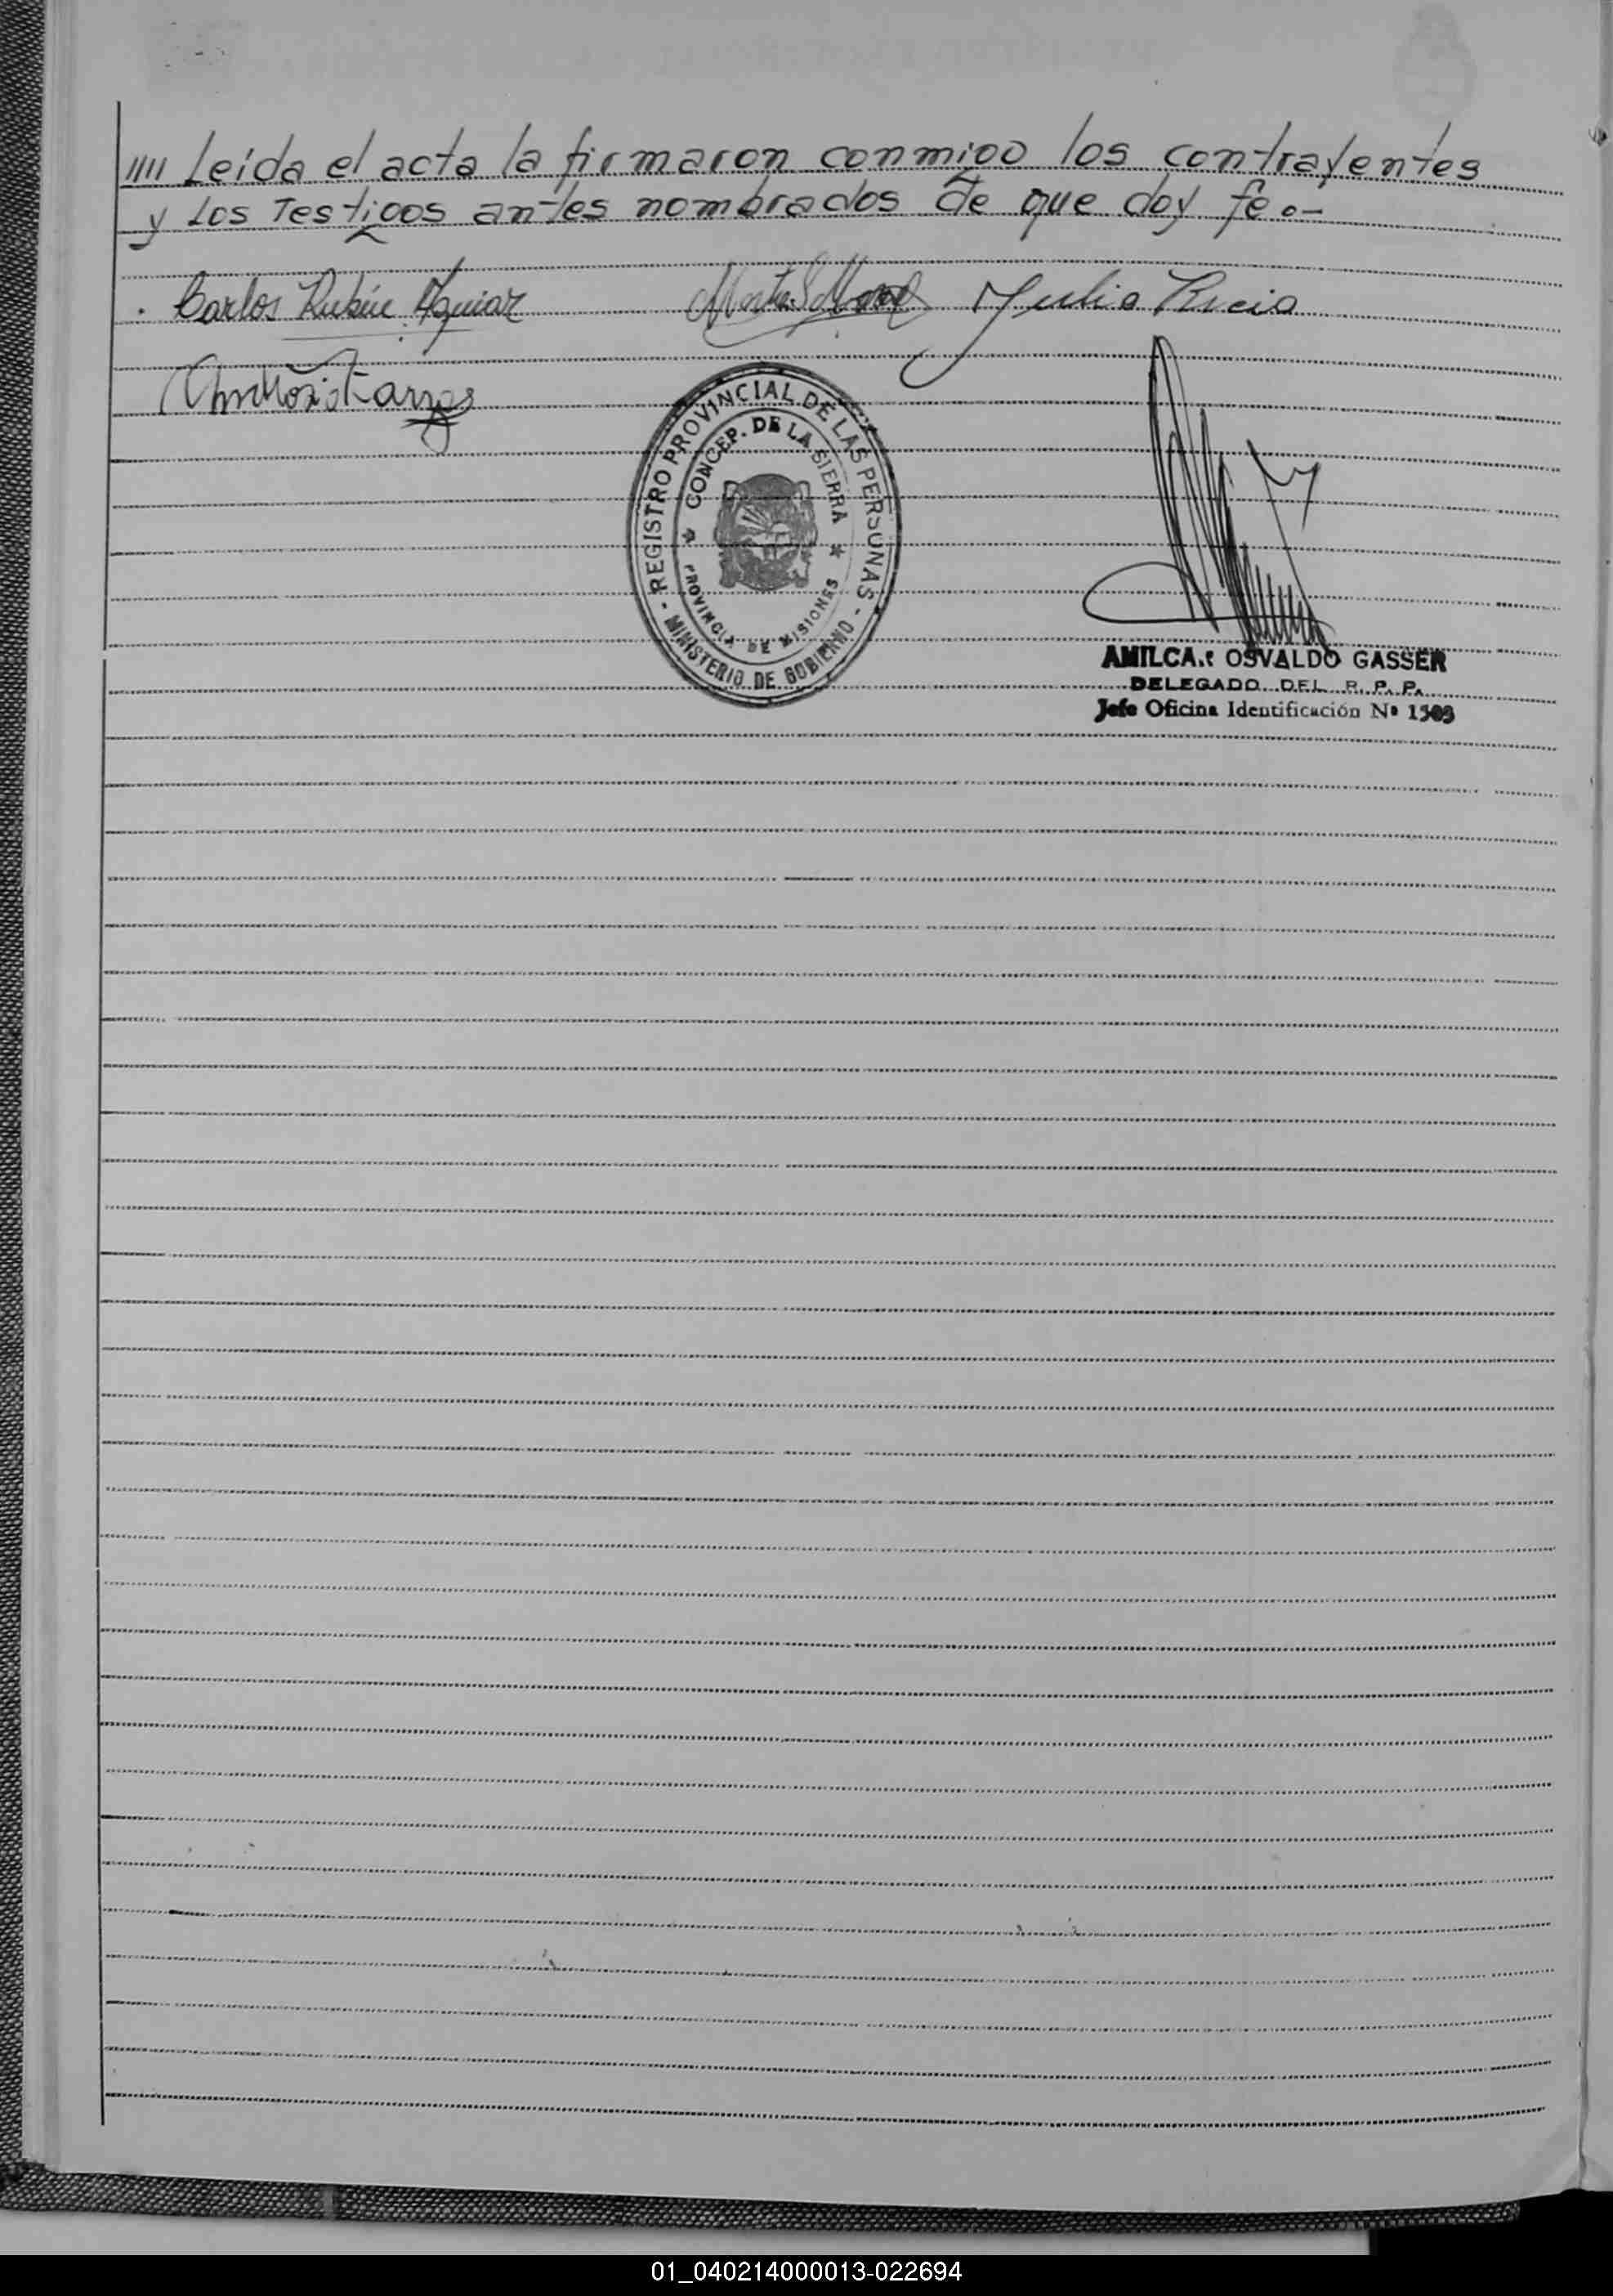 //// Leída el acta la firmaron conmigo los contrayentes
y los Testigos antes nombrados de que doy fe.-
Carlos Rubén Aguiar
Julio
REGISTRO PROVINCIAL DE LAS PERSONAS
CONCEP. DE LA SIERRA
PROVINCIA DE MISIONES
MINISTERIO DE GOBIERNO
AMILCAR OSVALDO GASSER
DELEGADO DEL R. P. P.
Jefe Oficina Identificación Nº 1503
01_040214000013-022694